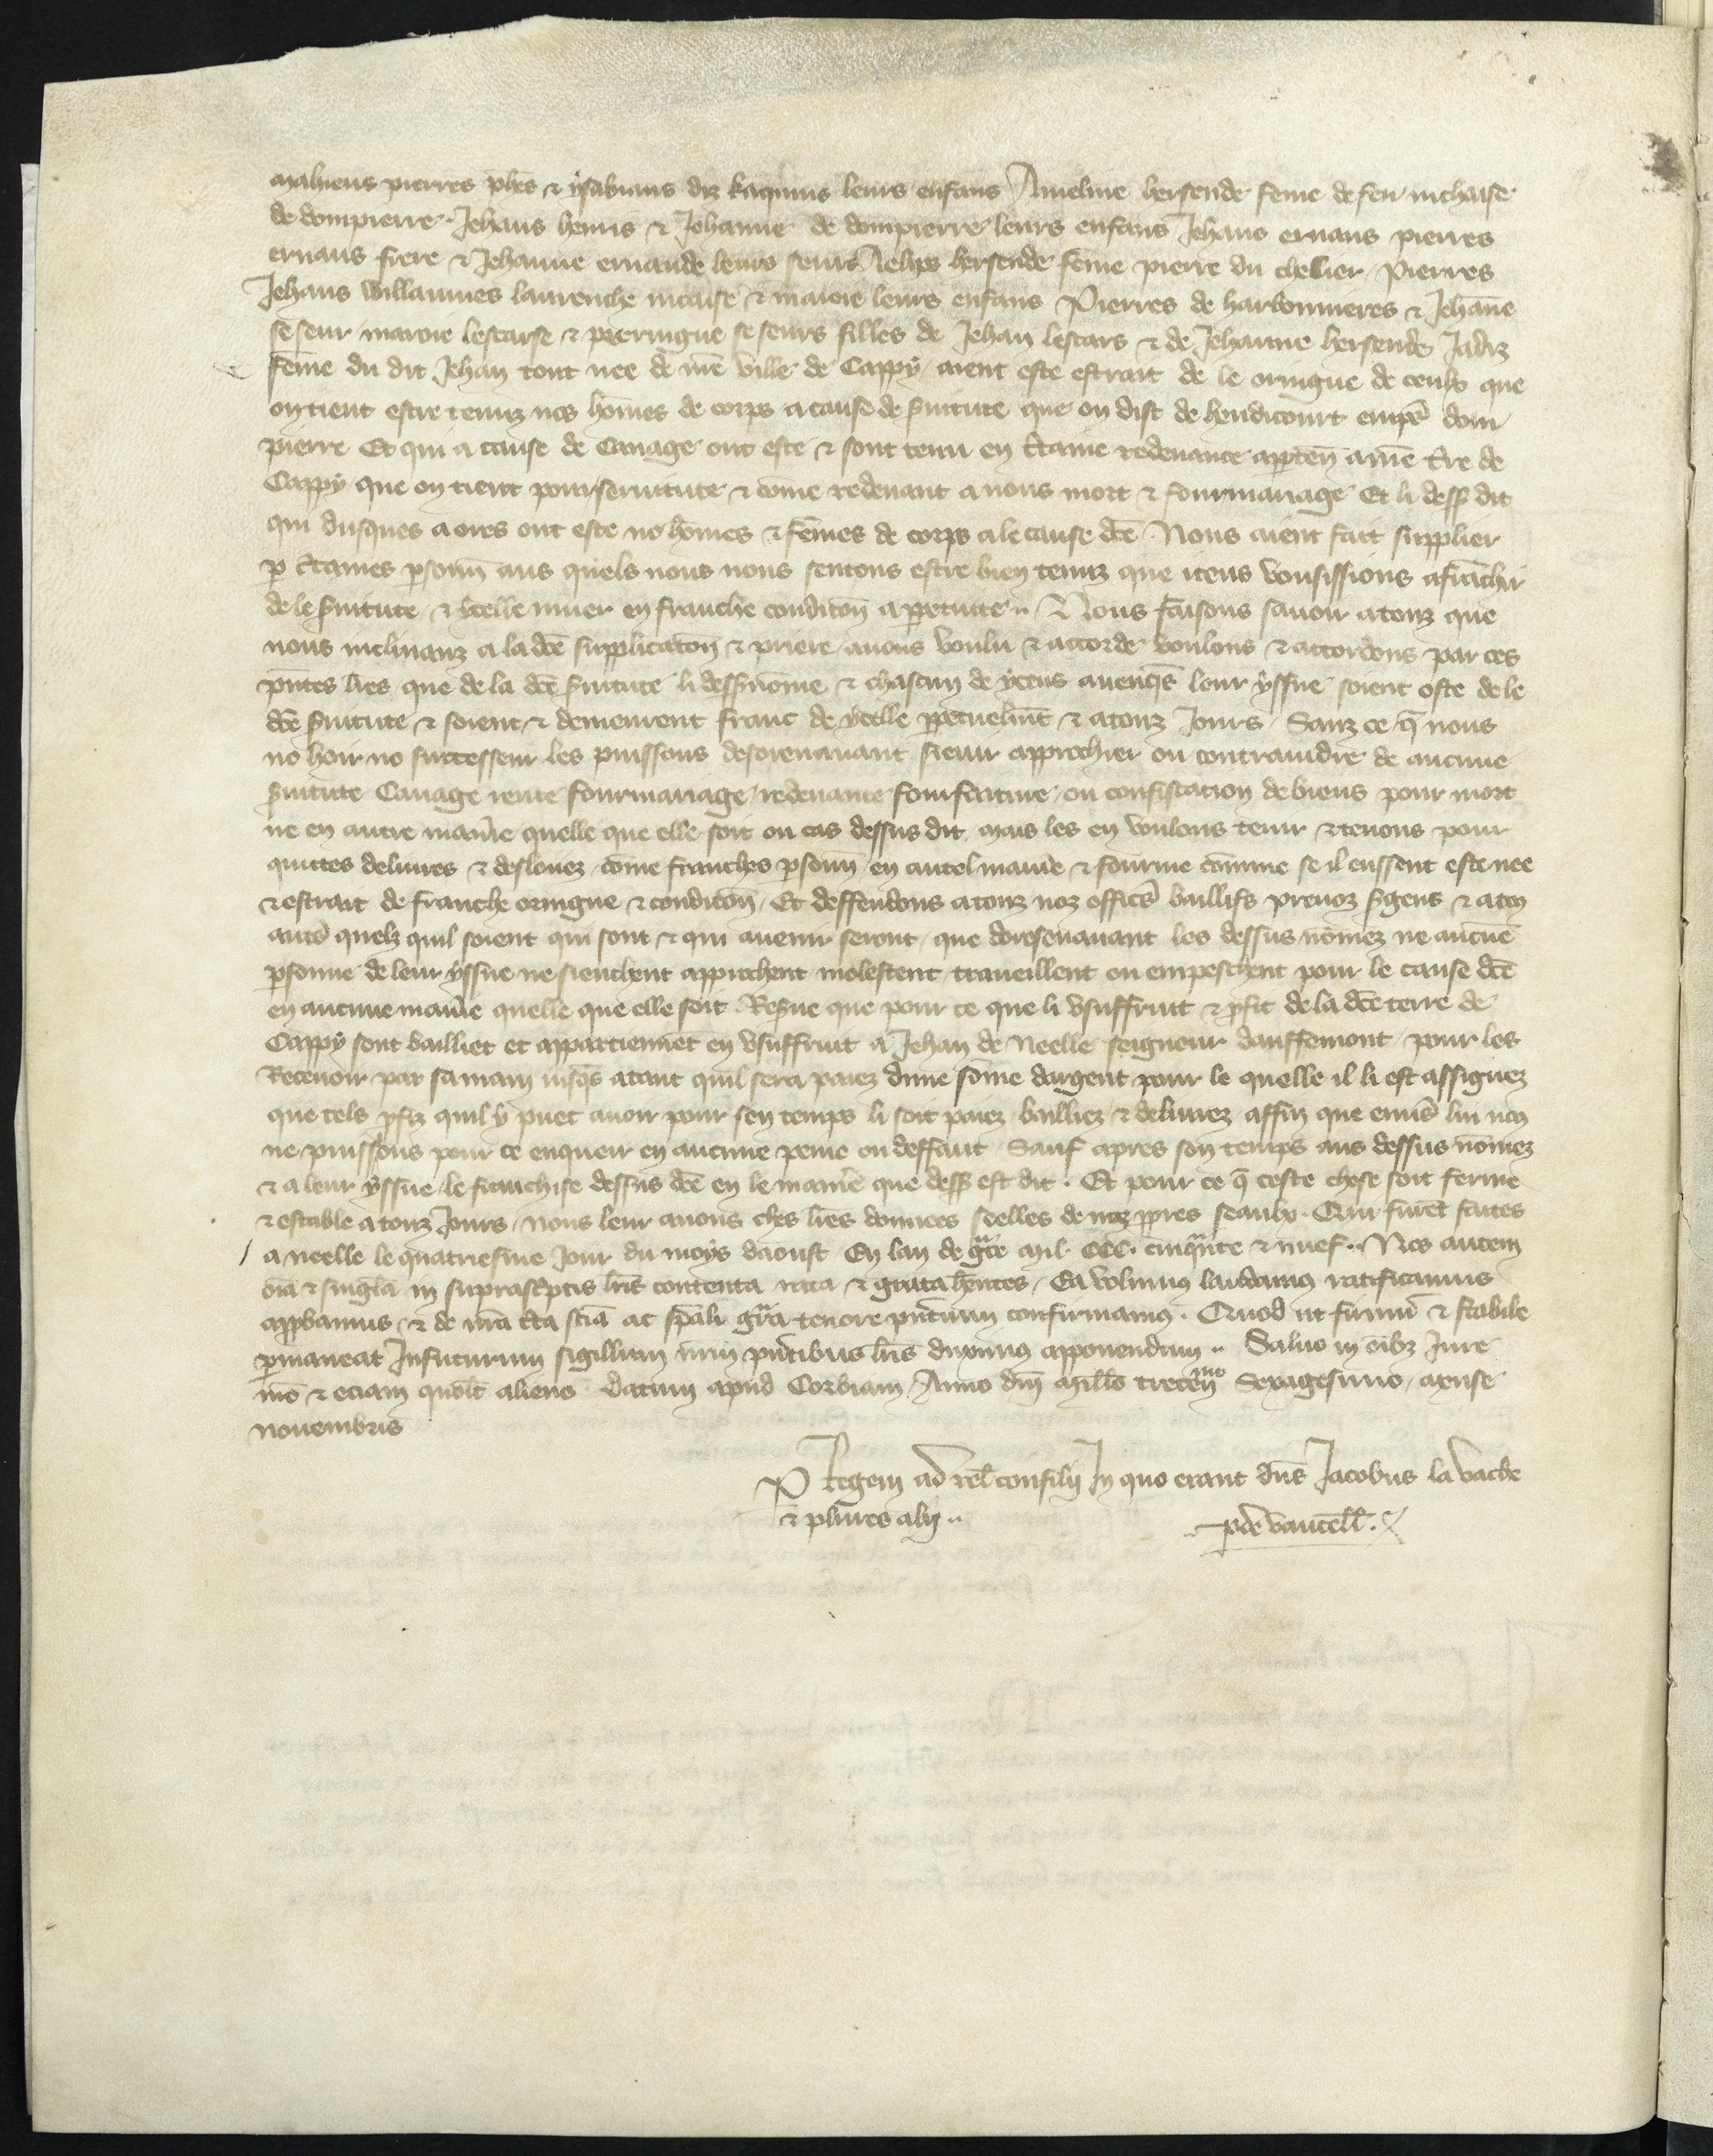 mahieus pierres phēs & ysabiaus diz kaquins leurs enfans Ameline hersende feme de feu nichaise
de dompierre Jehans henris & Jehanne de dompierre leurs enfans Jehans ernaus pierres
ernaus frere & Jehanne ernaude leurs seurs Aelips hersende feme pierre du chelier Pierres
Jehans willaumes laurenche nicaise & maroie leurs enfans Pierres de harbonnieres & Jehāne
se seur maroie lescarse & pierringue se seurs filles de Jehan lescars & de Jehanne hersende Jadiz
feme du dit Jehan tout nee de nrē ville de Cappy aient este estrait de le oringue de ceulx que
on tient estre tenuz nos hōmes de corps a cause de suitute que on dist de hendicourt empē dom
pierre Et qui a cause de Cavage ont este & sont tenu en ctaine redevance apptēn a nrē tre de
Cappy que on tient pour servitute & cōme redevant a nous mort & fourmariage Et li dess dit
qui dusques a ores ont este no hōmes & fēmes de corps a le cause dcē Nous aient fait supplier
p ctaines psonn aus quels nous nous sentons estre bien tenuz que iceus vousissions afrāchir
de le suitute & ycelle muer en franche conditōn a ppetuite Nous faisons savoir a touz que
nous inclinanz a la dcē supplicatōn & priere avons voulu & accorde voulons & accordons par ces
pntes lrēs que de la dcē suitute li dess nōme & chascun de yceus avenqs leur yssue soient oste de le
dcē suitute & soient & demeurent franc de ycelle ppetuelmt & a touz Jours Sanz ce q̄ nous
no hoir no successeur les puissons desorenavant sieuir approchier ou contraindre de aucune
suitute Cavage rente fourmariage redevance fourfaiture ou confiscation de biens pour mort
ne en autre manie quelle que elle soit ou cas dessus dit mais les en voulons tenir & tenons pour
quittes delivres & desloiez cōme franches psonn en autel manie & fourme cōmme se il eussent este nee
& estrait de franche oringue & conditōn Et deffendons a touz noz officrs baillifs prevoz sgens & a toz
autrs quelz quil soient qui sont & qui avenir seront que doresenavant les dessus nōmez ne aucūe
psonne de leur yssue ne sieuchent approchent molestent traveillent ou empeschent pour le cause dcē
en aucune manie quelle que elle soit Resue que pour ce que li usuffruit & pfit de la dcē terre de
Cappy sont bailliet et appartiennēt en usuffruit a Jehan de Neelle seigneur dauffemont pour les
Recevoir par sa main iusqs atant quil sera paiez dune sōme dargent pour le quelle il li est assignez
que tels pfiz quil y puet avoir pour sen temps li soit paiez bailliez & delivrez affin que envrs lui nos
ne puissons pour ce enqueir en aucune peine ou deffaut Sauf apres son temps aus dessus nōmez
& a leur yssue le franchise dessus dcē en le maniē que dess est dit . Et pour ce q̄ ceste chose soit ferme
& estable a touz Jours Nous leur avons ches lrēs donnees seelles de noz ppres seaulx . Qui furēt faites
a neelle le quatriesme Jour du moys daoust En lan de grāce mil . CCC . cinquāte & nuef .. Nos autem
ōia & singla in suprascptis lris contenta rata & grata hentes Ea volumus laudamus ratificamus
approbamus & de nrā cta sciā ac spāli grā tenore pntium confirmamus . Quod ut firmū & stabile
pmaneat Infuturum sigillum nrm pntibus lris duximus apponendum .. Salvo in ōibz Jure
nrō & eciam quolt alieno Datum apud Corbiam Anno dni Millo trecenmo Sexagesimo mense
novembris
P Regem ad relō consilij In quo erant dns Jacobus la vache
& plures alij ..
p de vaucell .